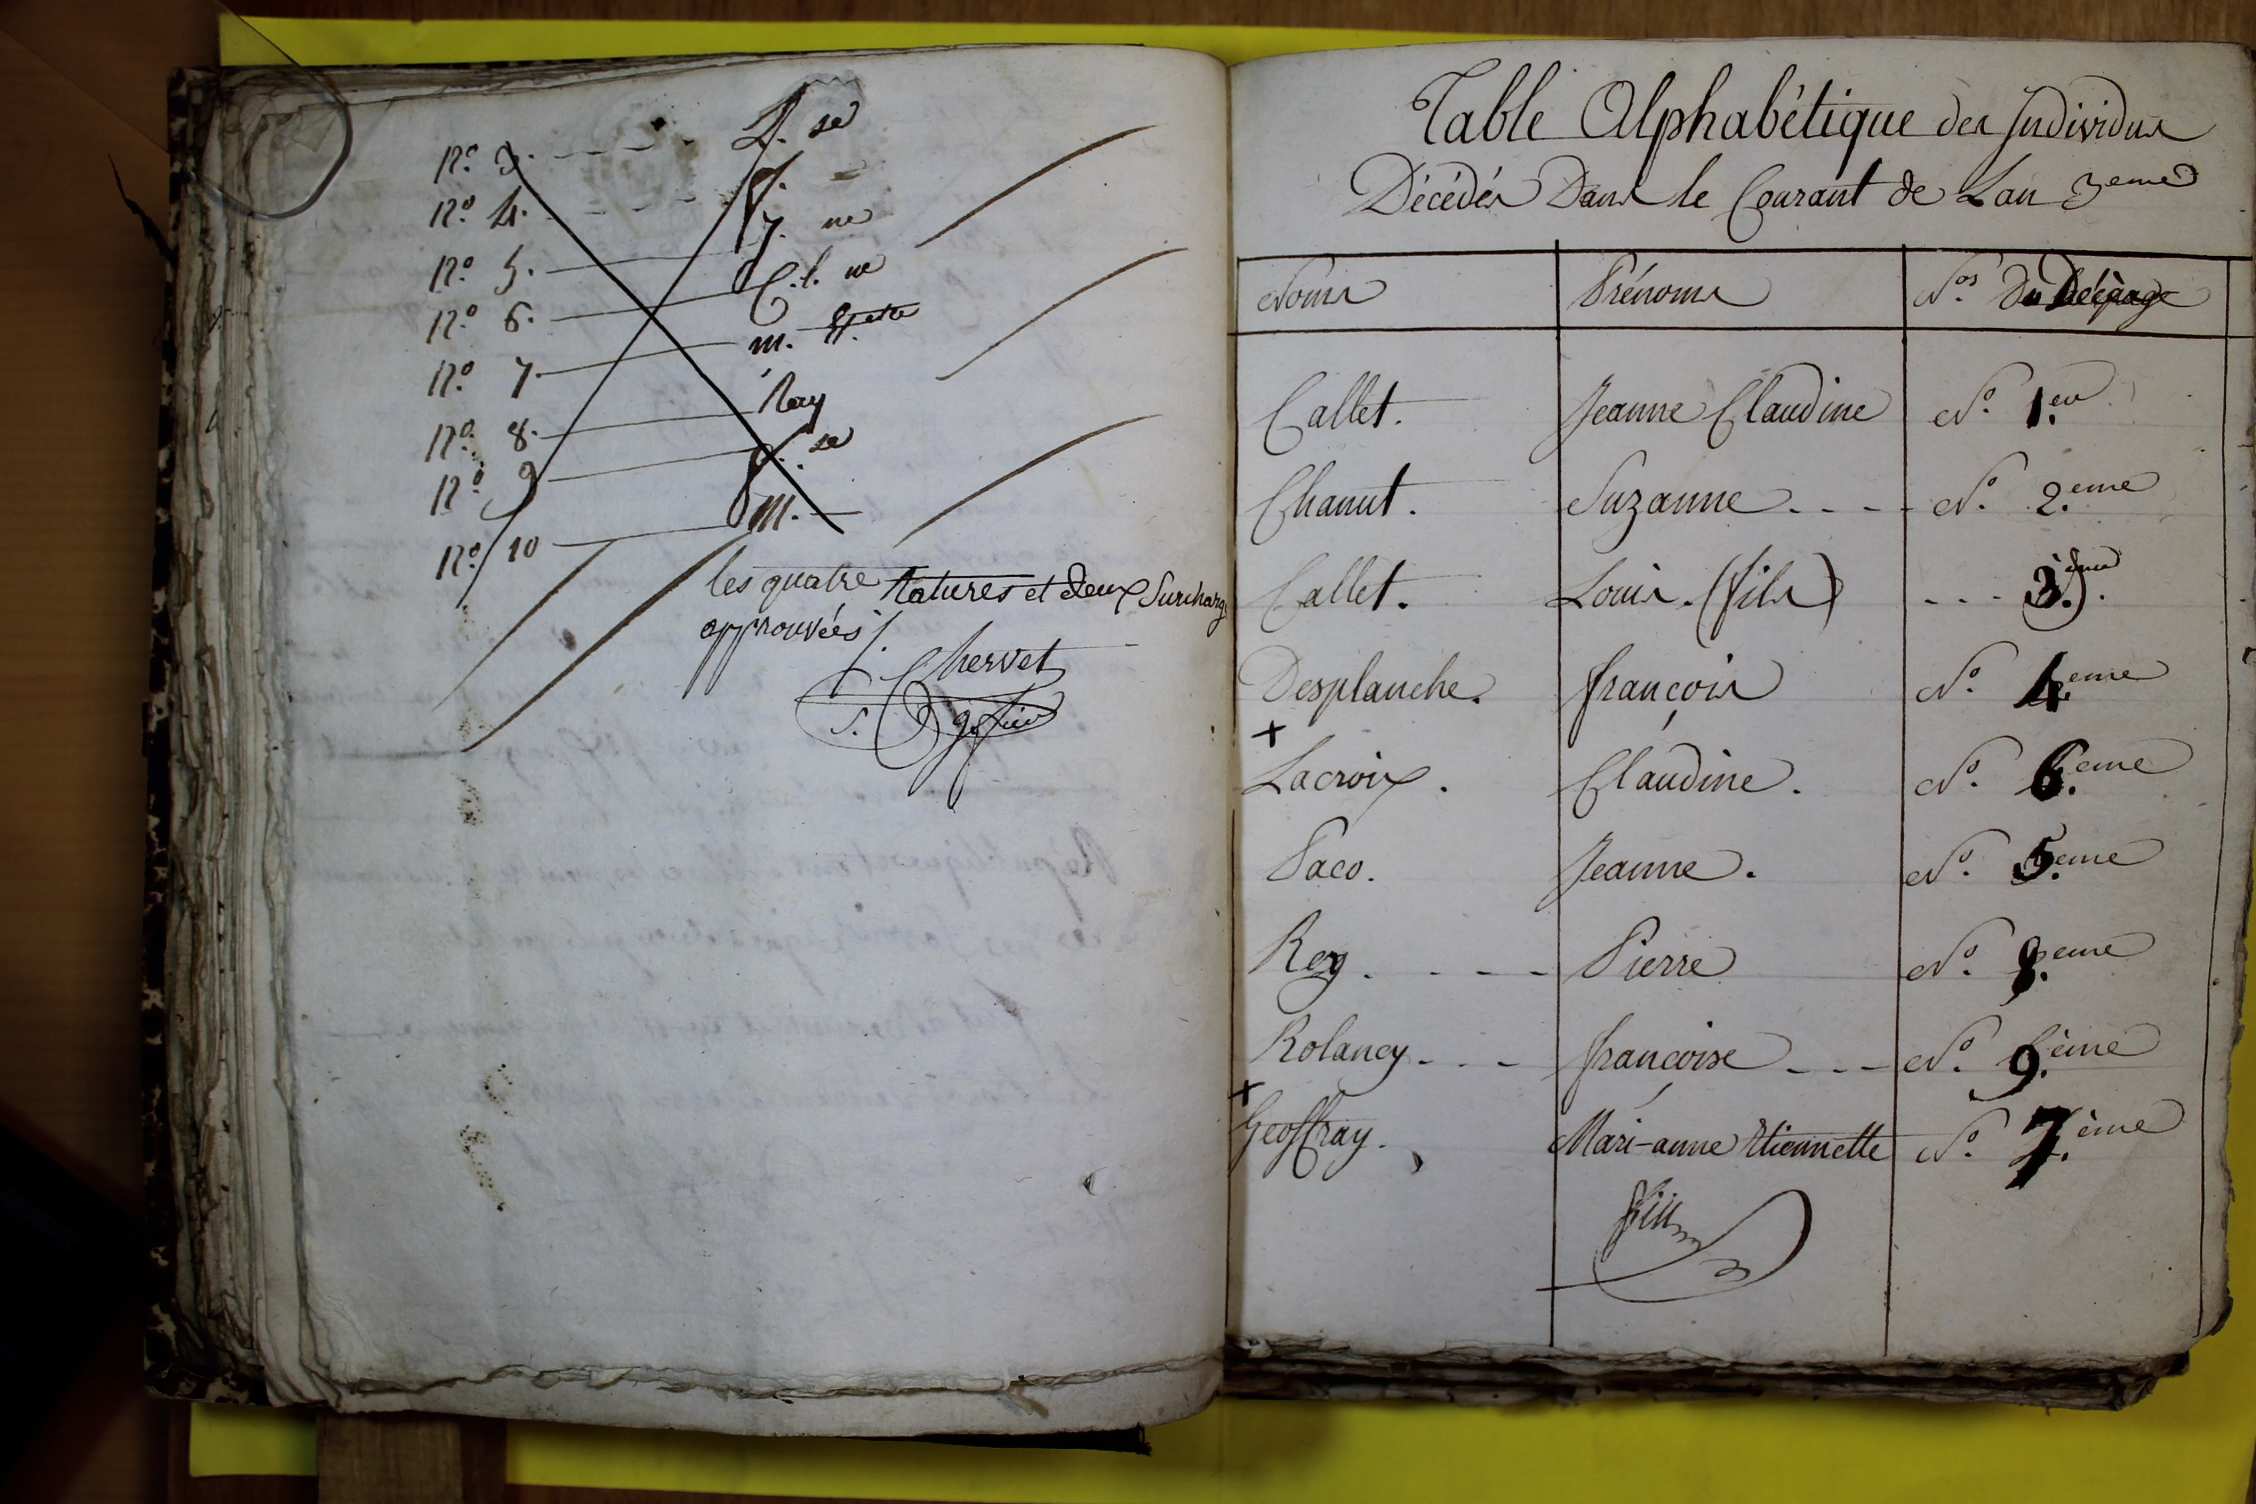 N.º 3. L. se
N.º 4. f.
N.º 5. J. ne
N.º 6. C. l. ne
N.º 7. m. E.ette
N.º 8. Rey
N.º 9 f. se
N.º 10 m.
les quatre Ratures et deux Surcharg
approuvées /.
Chervet
Table Alphabétique des Individus
Décédés Dans le Courant de Lan 3eme
Noms Prénoms N.os Du
Callet. Jeanne Claudine N.º 1.er
Chanut. Suzanne N.º 2.eme
Callet. Louis. (fils) 3.ème
Desplanche. françois N.º 4.eme
+
Lacroix. Claudine. N.º 6.eme
Paco. Jeanne. N.º 5.eme
Rey. Pierre N.º 8.eme
Rolancy françoise N.º 9.ème
+
Geoffray. Mari-anne Etiennette N.º 7.ème
fin